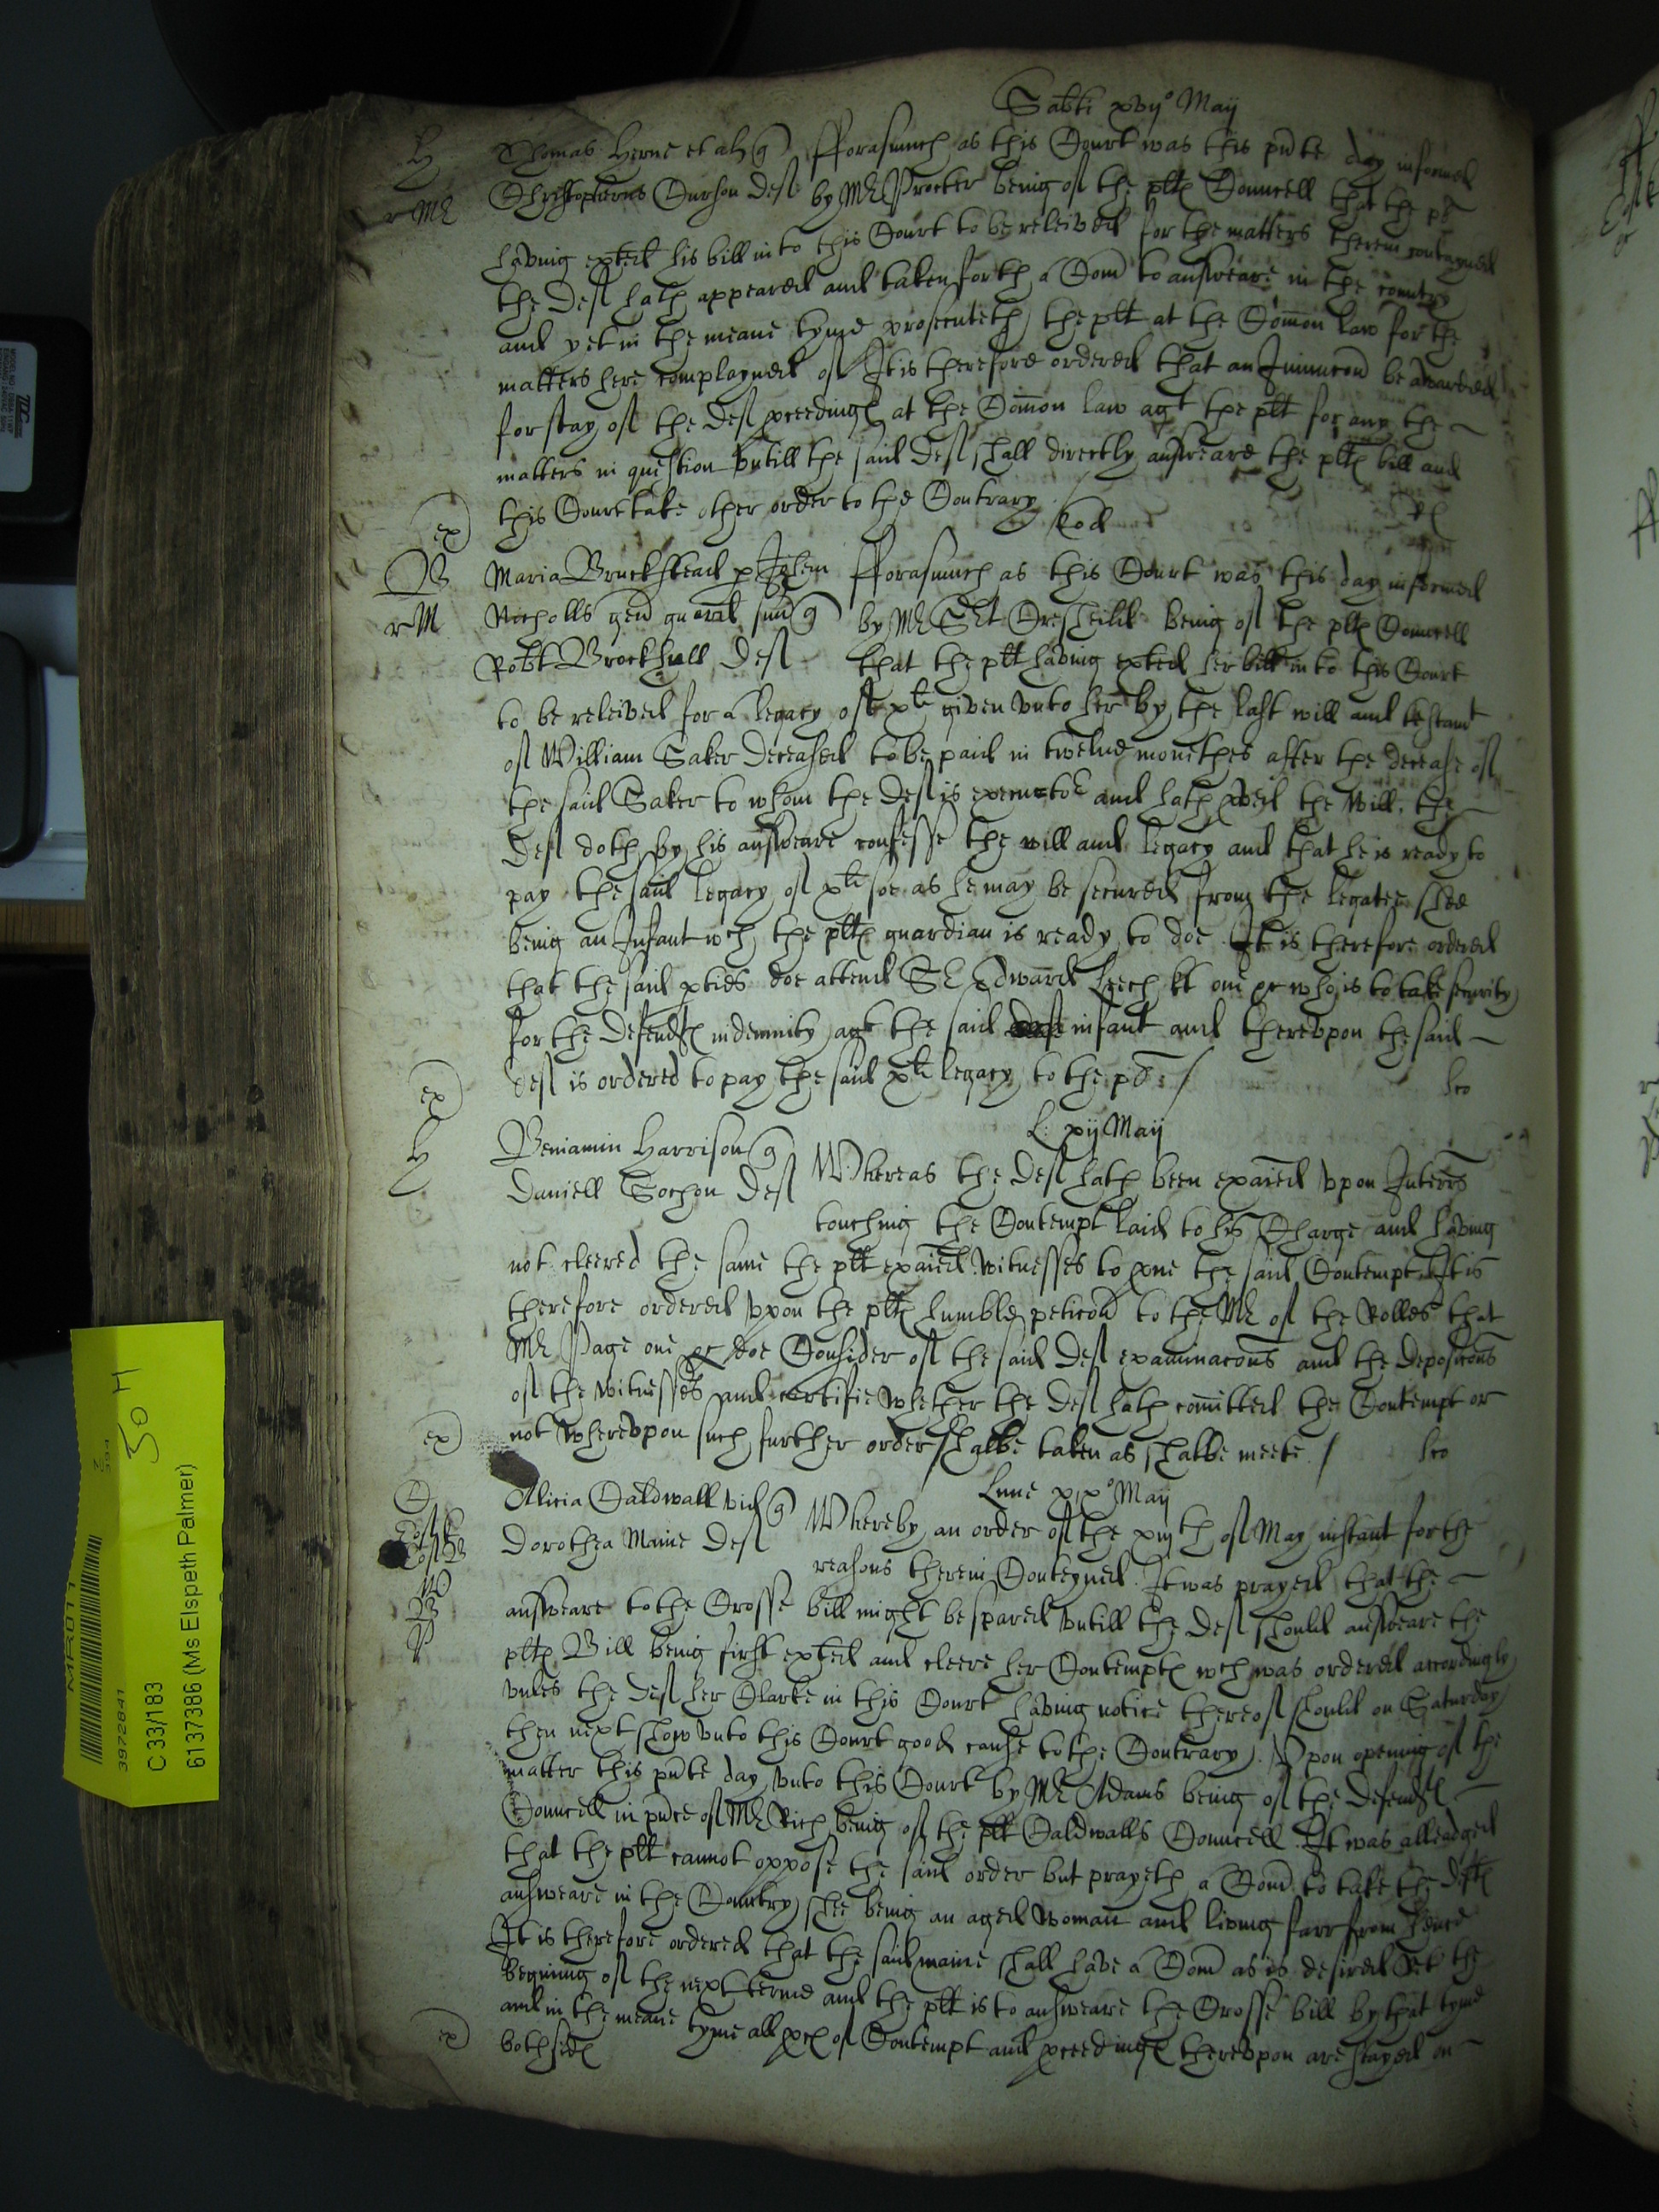 Sabti xvijo Maij
H Thomas Herne et al q fforasmuch as this Court was this pnte day informed
r Mr Christopherus Curson Def by Mr Procter being of the pltes Councell that the pt
having exted his bill into this Court to be releived for the matters therein conteyned
the Def hath appeared and taken forth a Com to answeare in the countrey
and yet in the meane tyme prosecuteth the plt at the Comon law for the
matters here complayned of It is therefore ordered that an Iniuncon be awarded
for stay of the Def pceedinges at the Comon law agt the plt for any the
matters in question vntill the said Def shall directly answeare the pltes bill and
this Court take other order to the Contrary /
ex) eod
B Maria Bruckstead p Johem fforasmuch as this Court was this day informed
r M Nicholls gen guard suu q by Mr Sct Cresheild being of the pltes Councell
Robt Brockhull Def that the plt having exted her bill into this Court
to be releived for a legacy of xli given vnto her by the last will and testamt
of William Saker deceased to be paid in twelve monethes after the decease of
the said Saker to whom the Def is executor and hath pved the Will. the
Def doth by his answeare confesse the will and legacy and that he is ready to
pay the said legacy of xli soe as he may be secured from the legatee shee
being an Infant wch the pltes guardian is ready to doe It is therefore ordered
that the said pties doe attend Sr Edward Leech kt one &c who is to take security
for the Defendtes indemnity agt the said infant and therevpon the said
ex) Def is ordered to pay the said xli legacy to the pt / 
L: xij Maij
H Beniamin Harrison q Whereas the Def hath been exaied vpon Interrs
Daniell Gochon Def
touching the Contempt laid to his Charge and having
not cleered the same the plt exaied witnesses to pve the said Contempt It is
therefore ordered vpon the pltes humble peticon to the Mr of the Rolles that
Mr Page one &c doe Consider of the said Def examinacons and the depositons
of the witnesses and certifie whether the Def hath comitted the Contempt or
ex) not wherevpon such further order shalbe taken as shalbe meete /
Lune xixo Maij
C Alicia Caldwall vid q Whereby an order of the xiijth of May instant for the
Dorothea Maine Def
reasons therein Conteyned It was prayed that the
answeare to the Crosse bill might be spared vntill the Def should answeare the
pltes Bill being first exted and cleere her Contemptes wch was ordered accordingly
vnles the Def her Clarke in this Court having notice thereof should on Saturday
then next show vnto this Court good cause to the Contrary. Vpon opening of the
matter this pnte day vnto this Court by Mr Adams being of the Defendtes
Councell in pnce of Mr Rich being of the plt Caldwalls Councell It was alleadged
that the plt cannot oppose the said order but prayeth a Com to take the Deftes
answeare in the Country shee being an aged woman and living farr from hence
It is therefore ordered that the said maine shall have a Com as is desired ret the
begining of the next terme and the plt is to answeare the Crosse bill by that tyme
and in the meane tyme all pces of Contempt and pceedinges therevpon are stayed on
ex) both sides
MR011
3972841
C 33/183
6137386 (Ms Elspeth Palmer)
50 H